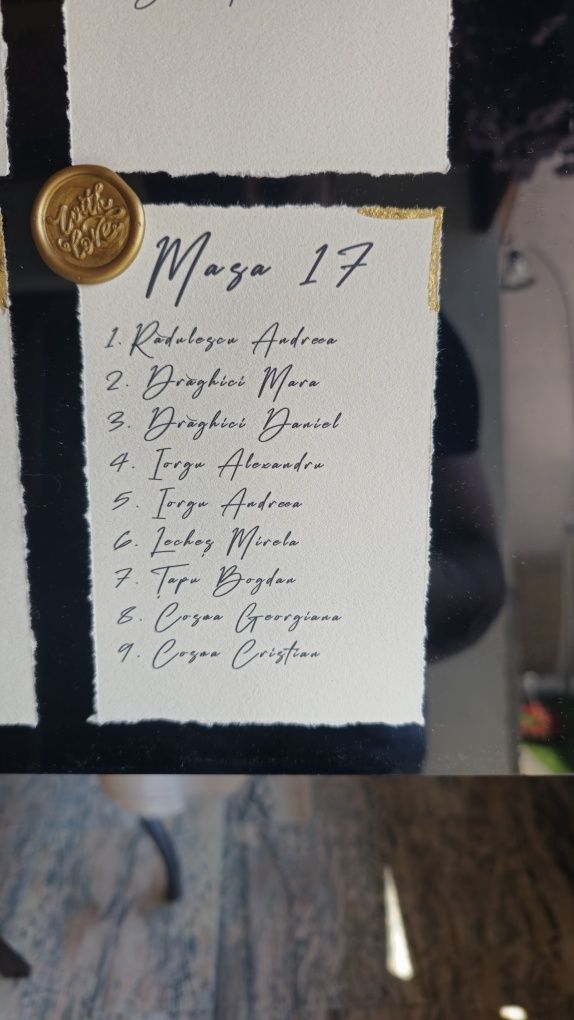 with
love
Masa 17
1. Rădulescu Andreea
2. Drăghici Mara
3. Drăghici Daniel
4. Iorgu Alexandru
5. Iorgu Andreea
6. Lecheș Mirela
7. Țapu Bogdan
8. Cosma Georgiana
9. Cosma Cristian